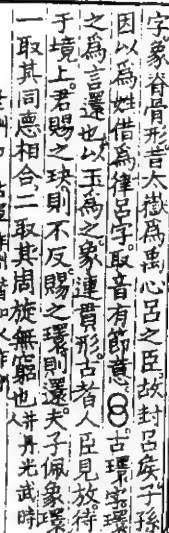 字。象脊骨形。昔太嶽爲禹心呂之臣。故封呂矦。子孫
因以爲姓借爲律呂字。取音有節意。古環字環
之爲言還也。以玉爲之。象連貫形。古者人臣見放。待
于境上。君賜之玦。則不反。賜之環。則還。夫子佩象環
一取其同悳相合。二取其周旋無窮也
井丹光武時